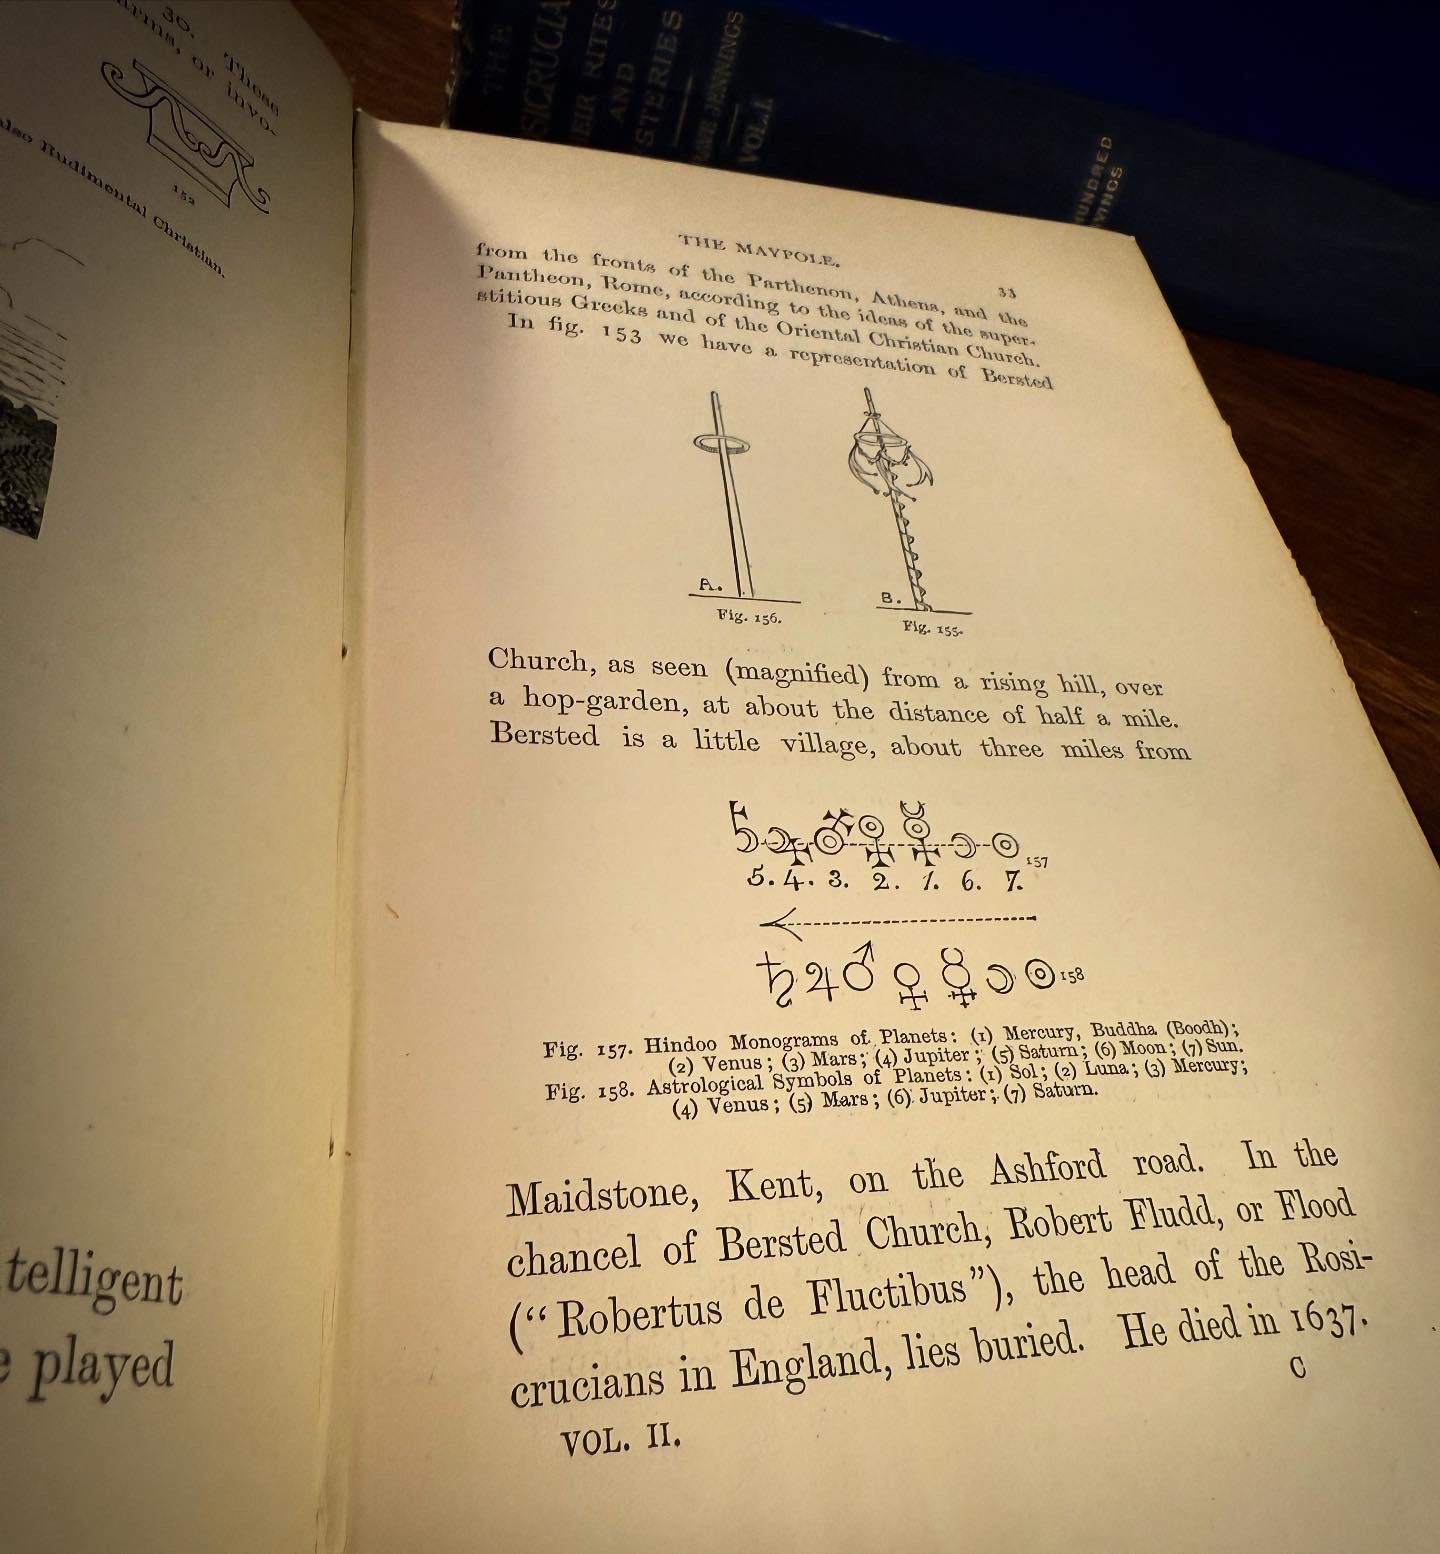 30. These
arms, or invo-
152
also Rudimental Christian.
telligent
played
THE
SICRUCIA
EIR RITES
AND
STERIES
JENNINGS
VOL. I.
HUNDRED
VINGS
THE MAYPOLE. 33
from the fronts of the Parthenon, Athena, and the
Pantheon, Rome, according to the ideas of the super-
stitious Greeks and of the Oriental Christian Church.
In fig. 153 we have a representation of Bersted
A. B.
Fig. 156. Fig. 155.
Church, as seen (magnified) from a rising hill, over
a hop-garden, at about the distance of half a mile.
Bersted is a little village, about three miles from
157
5. 4. 3. 2. 1. 6. 7.
♄♃♂♀☿☽☉ 158
Fig. 157. Hindoo Monograms of Planets: (1) Mercury, Buddha (Boodh);
(2) Venus; (3) Mars; (4) Jupiter; (5) Saturn; (6) Moon; (7) Sun.
Fig. 158. Astrological Symbols of Planets: (1) Sol; (2) Luna; (3) Mercury;
(4) Venus; (5) Mars; (6) Jupiter; (7) Saturn.
Maidstone, Kent, on the Ashford road. In the
chancel of Bersted Church, Robert Fludd, or Flood
("Robertus de Fluctibus"), the head of the Rosi-
crucians in England, lies buried. He died in 1637.
VOL. II. C